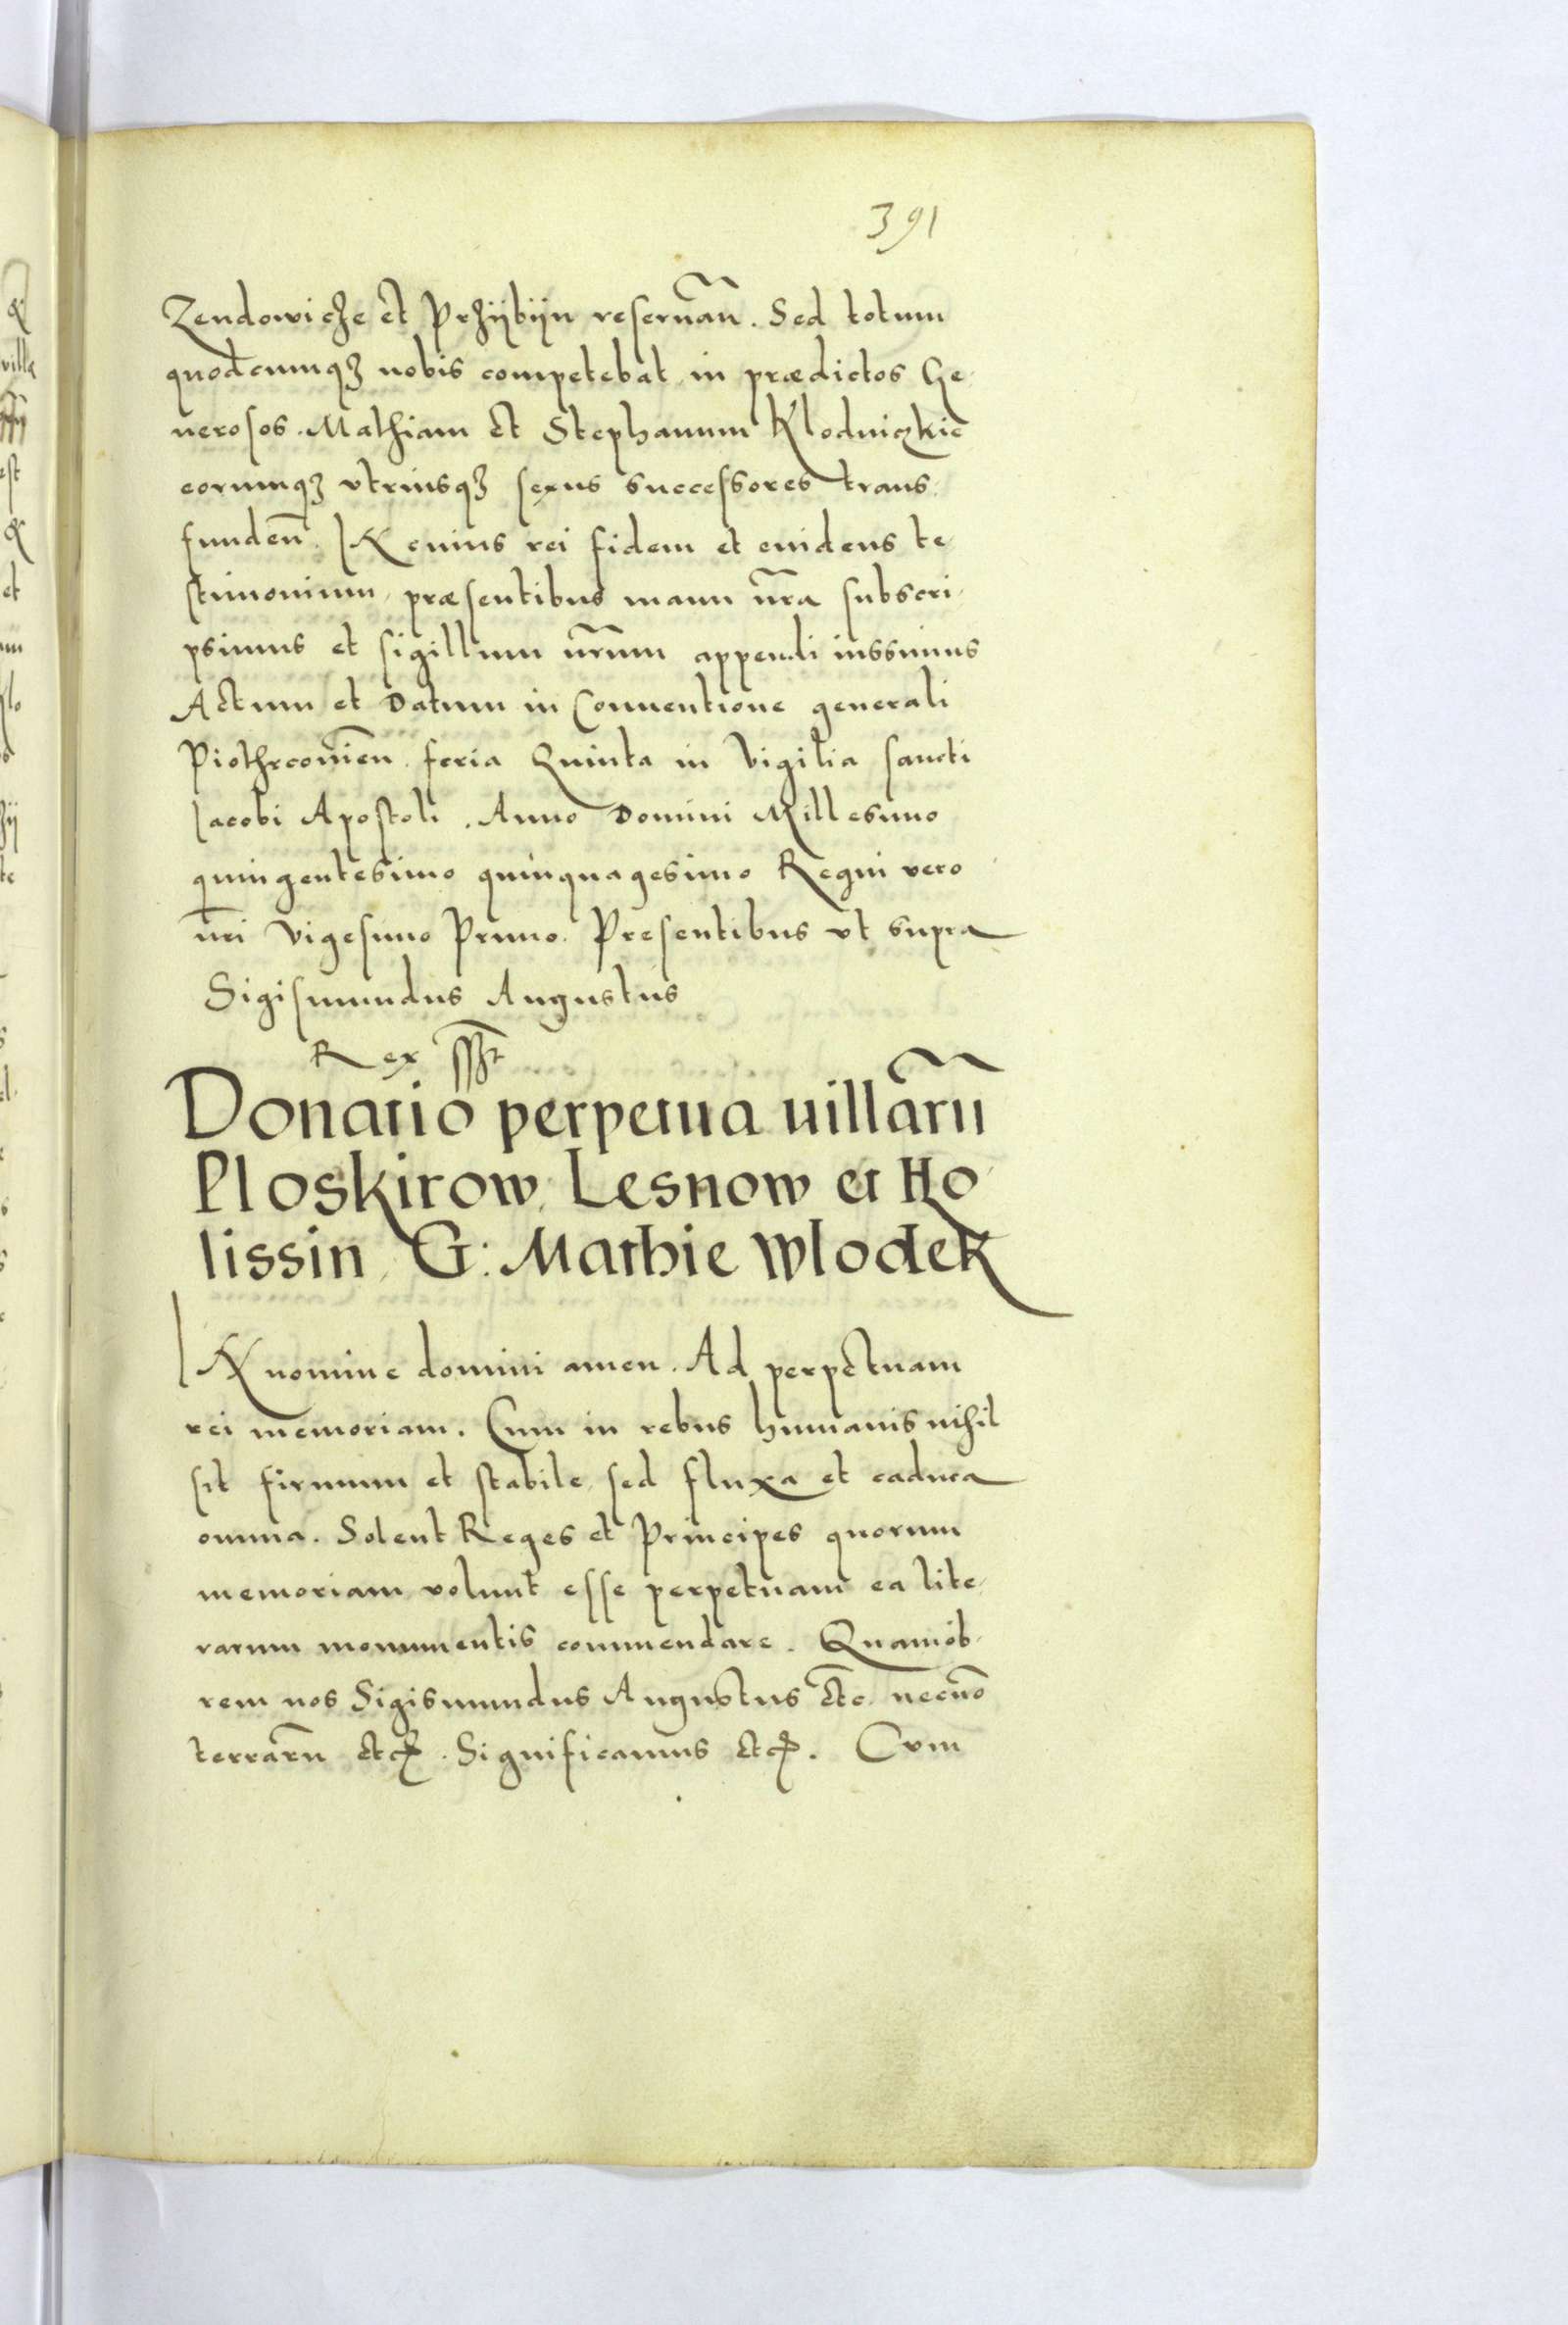 391
Zendowicze et Przÿbÿn reseruãn. Sed totum
quodcumqꝫ nobis competebat in prædictos Ge-
nerosos Mathiam et Stephanum Klodniczkie
eorumqꝫ vtriusqꝫ sexus successores trans-
fundeñ. IN cuius rei fidem et euidens te-
stimonium, præsentibus manu nr̃a subscri-
psimus et sigillum nr̃um appendi iussimus
Actum et Datum in Conuentione generali
Piothrcouieñ. feria Quinta in Vigilia sancti
Iacobi Apostoli. Anno Domini Millesimo
quingentesimo quinquagesimo Regni vero
nr̃i Vigesimo Primo. Presentibus vt supra
Sigismundus Augustus
Rex sst
Donatio perpetua uillarũ
Ploskirow, Lesnow et Ho-
lissin, G: Mathie Wlodek
IN nomine domini amen. Ad perpetuam
rei memoriam. Cum in rebus humanis nihil
sit firmum et stabile, sed fluxa et caduca
omnia. Solent Reges et Principes quorum
memoriam volunt esse perpetuam ea lite-
rarum monumentis commendare. Quamob-
rem nos Sigismundus Augustus etc. necnõ
terrarũ etc. Significamus etc. Cum